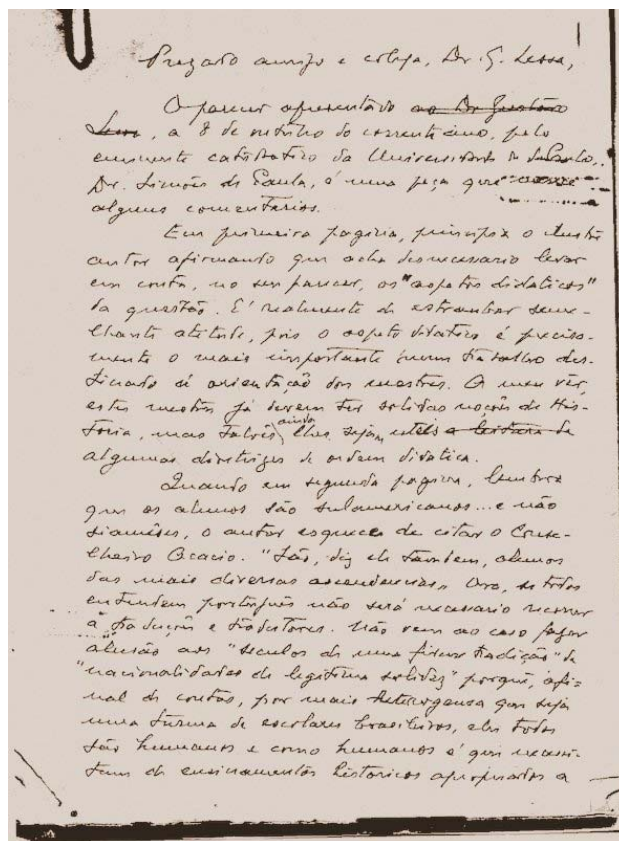 Prezado amigo e colega, Dr. G. Lessa,
O parecer apresentado ao Dr. Gustavo
Lessa, a 8 de outubro do corrente ano, pelo
eminente catedratico da Universidade de S. Paulo,
Dr. Simões de Paula, é uma peça que
alguns comentarios.
Em primeira pagina, principia o ilustre
autor afirmando que acha desnecessario levar
em conta, no seu parecer, os "aspetos didaticos"
da questão. E' realmente de estranhar seme-
lhante atitude, pois o aspeto didatico é precisa-
mente o mais importante num trabalho des-
tinado á orientação dos mestres. A meu vêr,
estes mestres já devem ter solidas noções de His-
toria, mas talvês ainda lhes sejam uteis a leitura de
algumas diretrizes de ordem didatica.
Quando em segunda pagina, lembra
que os alunos são sulamericanos... e não
siamêses, o autor esquece de citar o Conse-
lheiro Acacio. "São, diz ele tambem, alunos
das mais diversas ascendencias". Ora, se todos
entendem português não será necessario recorrer
a traduções e tradutores. Não vem ao caso fazer
alusão aos "seculos de uma firme tradição" de
"nacionalidades de legitima solidez" porquê, afi-
nal de contas, por mais heterogenea que seja
uma turma de escolares brasileiros, eles todos
são humanos e como humanos é que necessi-
tam de ensinamentos historicos apropriados a